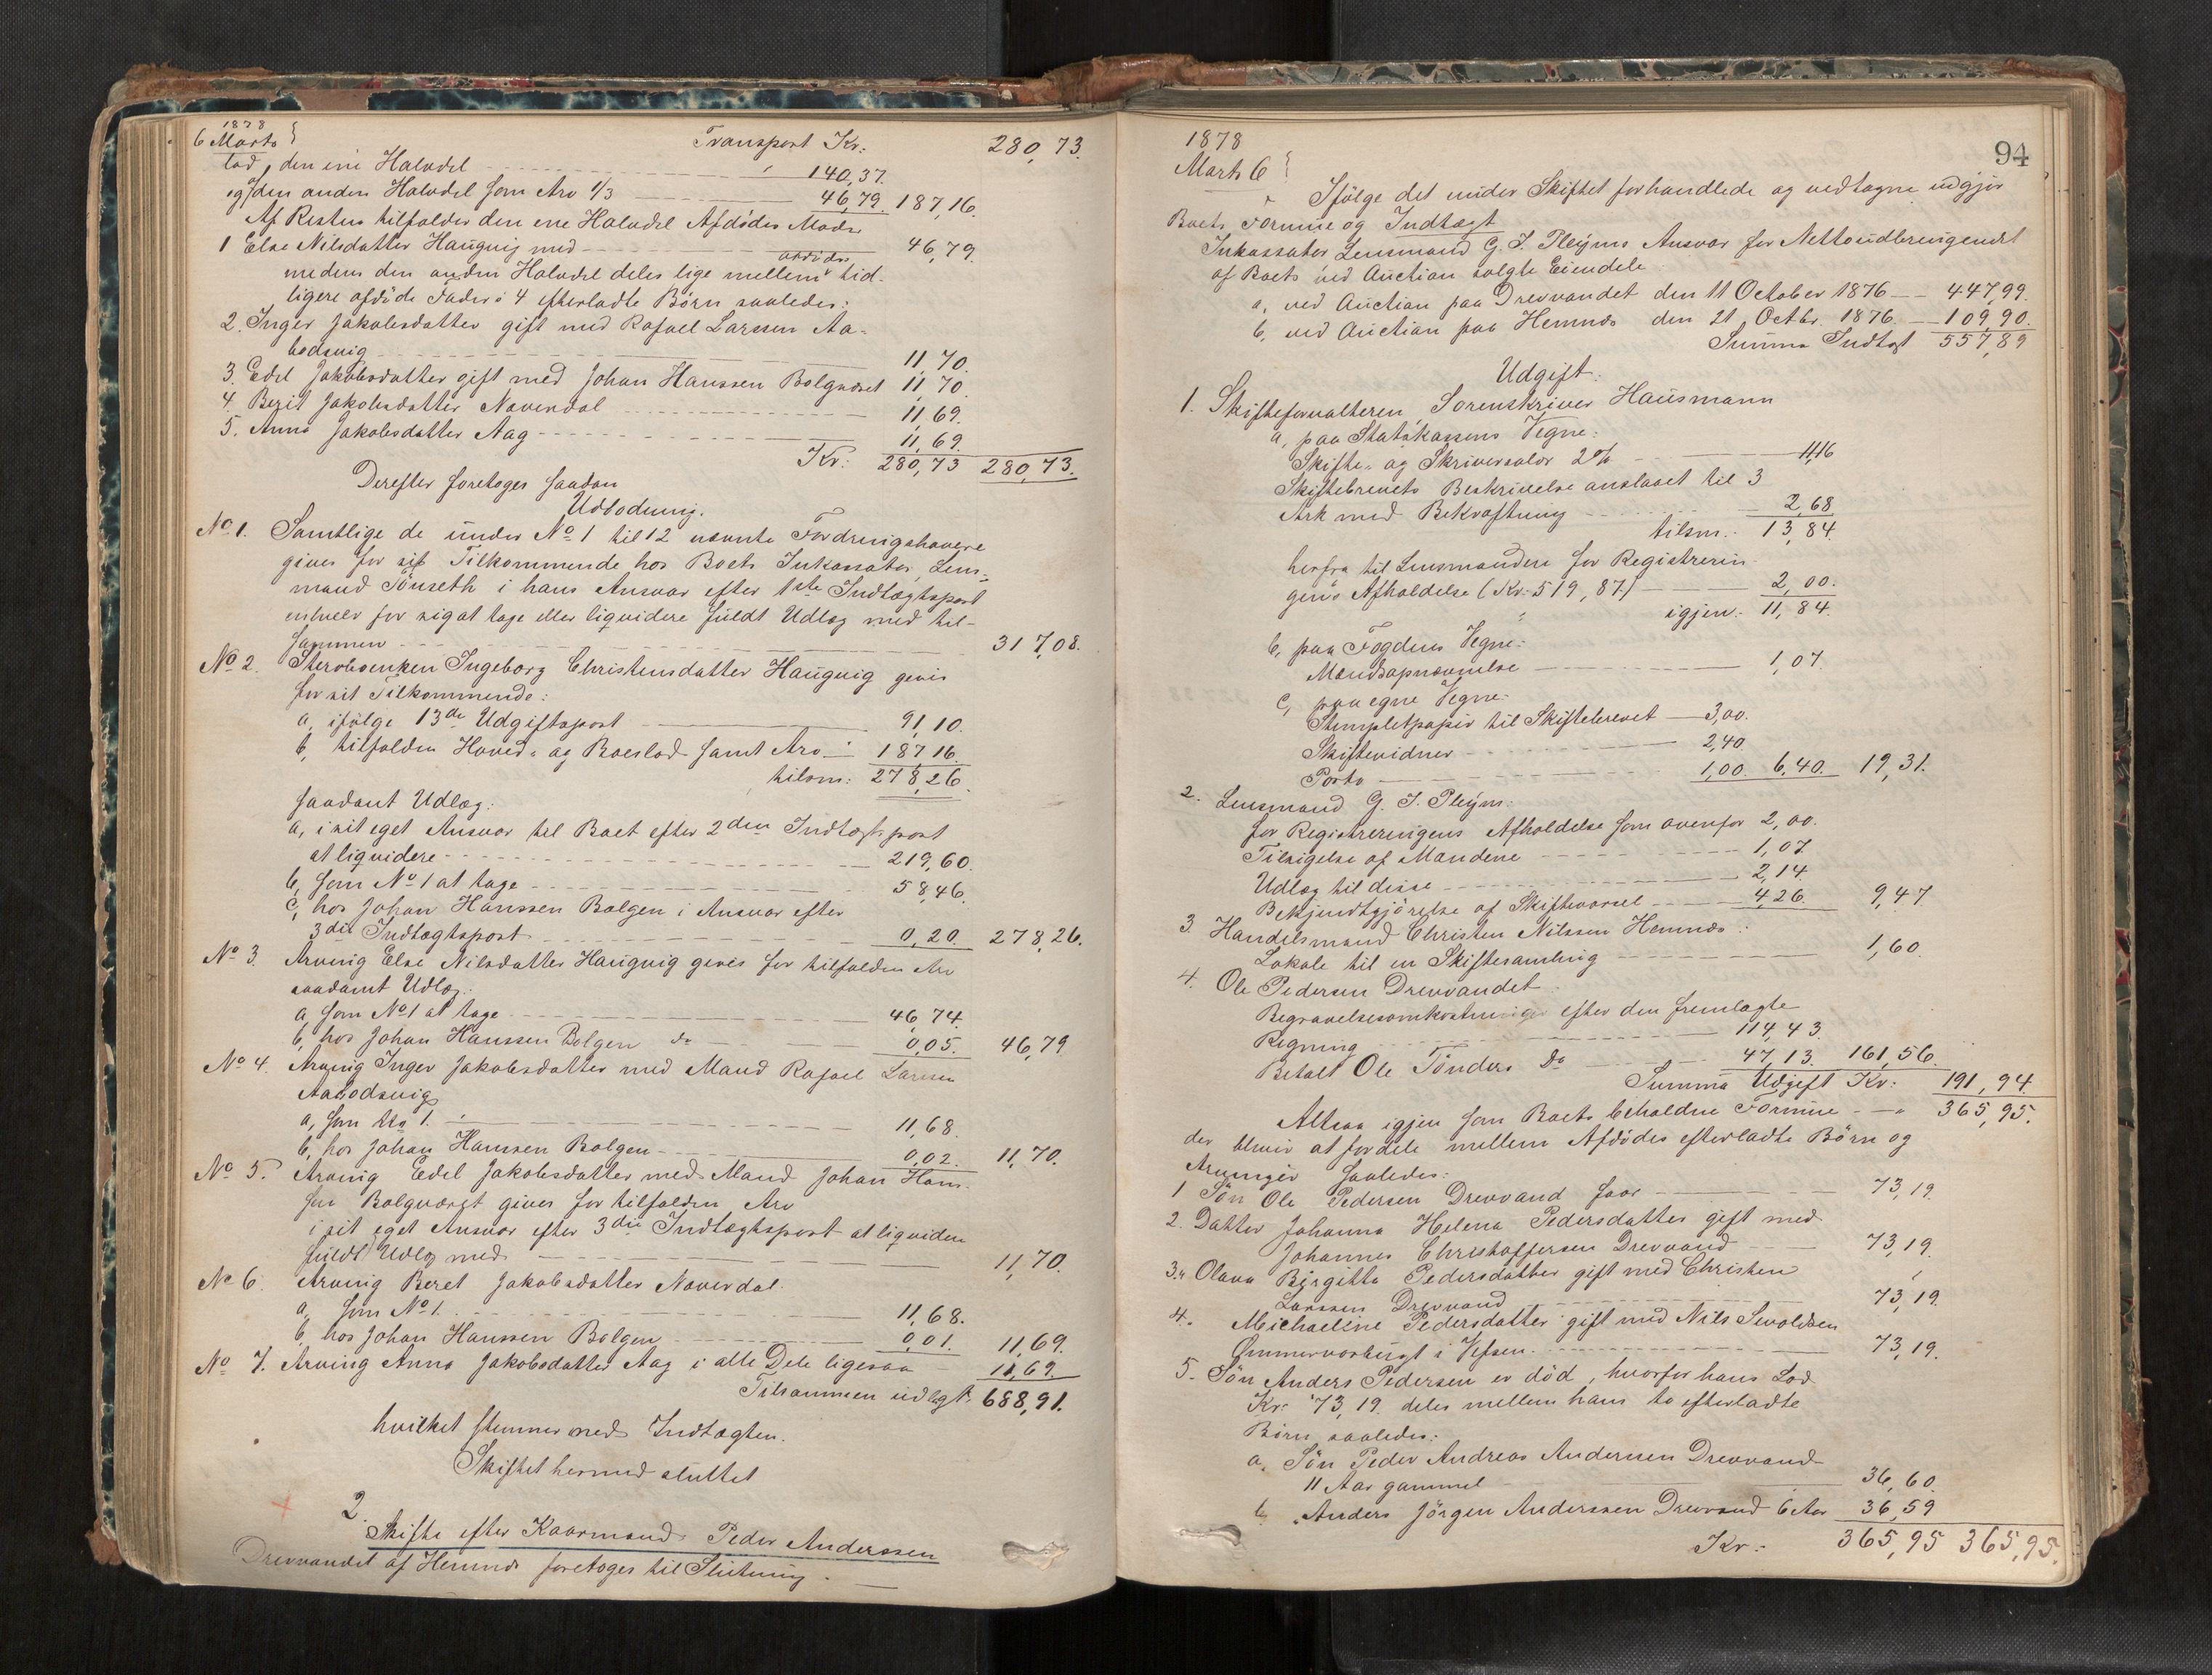 1878
6 Marts
Transport Kr: 280,73.
lod, den ene Halvdel 140,37.
og af den anden Halvdel som Arv 1/3 46,79. 187,16.
Af Resten tilfalder den ene Halvdel Afdødes Moder
1 Else Nilsdatter Haugvig med 46,79.
medens den anden Halvdel deles lige mellem afdødes tid-
ligere afdøde Faders 4 efterladte Børn saaledes:
2. Inger Jakobsdatter gift med Rafael Larssen Aa-
bodsvig 11,70.
3. Edel Jakobsdatter gift med Johan Hanssen Bolgværet 11,70
4. Berit Jakobsdatter Naverdal 11,69.
5. Anna Jakobsdatter Aag 11,69.
Kr: 280,73 280,73.
Derefter foretoges saadan
Udlodning.
No 1. Samtlige de under No 1 til 12 nævnte Fordringshavere
gives for sit Tilkommende hos Boets Inkassator, Lens-
mand Tönseth i hans Ansvar efter 1ste Indtægtspost
enhver for sig at tage eller liqvidere fuldt Udlæg med til-
sammen 317,08.
No 2. Sterboenken Ingeborg Christensdatter Haugvig gives
for sit Tilkommende:
a, ifølge 13de Udgiftspost 91,10.
b, tilfalden Hoved- og Boeslod samt Arv 187,16.
tilsm: 278,26.
saadant Udlæg:
a, i sit eget Ansvar til Boet efter 2den Indtægtspost
at liqvidere 219,60.
b, som No 1 at tage 58,46.
c, hos Johan Hanssen Bolgen i Ansvar efter
3die Indtægtspost 0,20. 278,26.
No 3. Arving Else Nilsdatter Haugvig gives for tilfalden Arv
saadant Udlæg:
a, som No 1 at tage 46,74.
b, hos Johan Hanssen Bolgen do 0,05. 46,79
No 4. Arving Inger Jakobsdatter med Mand Rafael Larssen
Aabodsvig
a, som No 1. 11,68.
b, hos Johan Hanssen Bolgen 0,02. 11,70.
No 5. Arving Edel Jakobsdatter med Mand Johan Hans-
sen Bolgværet gives for tilfalden Arv
i sit eget Ansvar efter 3die Indtægtspost at liqvidere
fuldt Udlæg med 11,70.
No 6. Arving Beret Jakobsdatter Naverdal.
a, som No 1. 11,68.
b, hos Johan Hanssen Bolgen 0,01. 11,69.
No 7. Arving Anna Jakobsdatter Aag i alle Dele ligesaa 11,69.
Tilsammen udlagt: 688,91.
hvilket stemmer med Indtægten.
Skiftet hermed sluttet
2.
Skifte efter Kaarmand Peder Anderssen
Drevvandet af Hemnes foretoges til Slutning.
94
1878
Marts 6
Ifølge det under Skiftet forhandlede og vedtagne udgjør
Boets Formue og Indtægt
Inkassator Lensmand G. J. Pleyms Ansvar for Nettoudbringendet
af Boets ved Auction solgte Eiendele
a, ved Auction paa Drevvandet den 11 October 1876 447,99.
b, ved Auction paa Hemnes den 21 Octbr. 1876. 109,90.
Summa Indtægt 557,89
Udgift:
1. Skifteforvalteren, Sorenskriver Hausmann
a, paa Statskassens Vegne:
Skifte- og Skriversalær 2% 11,16
Skiftebrevets Beskrivelse anslaaet til 3
Ark med Bekræftning 2,68
tilsm.: 13,84.
herfra til Lensmanden for Registrerin-
gens Afholdelse (Kr. 519,87) 2,00.
igjen: 11,84.
b, paa Fogdens Vegne:
Mandsopnævnelse 1,07.
c, paa egne Vegne:
Stempletpapir til Skiftebrevet 3,00.
Skiftevidner 2,40.
Porto 1,00. 6,40. 19,31.
2. Lensmand G. J. Pleym:
for Registreringens Afholdelse som ovenfor 2,00.
Tilsigelse af Mændene 1,07
Udlæg til disse 2,14
Bekjendtgjørelse af Skiftevarsel 4,26. 9,47
3. Handelsmand Christen Nilssen Hemnes:
Lokale til en Skiftesamling 1,60
4. Ole Pedersen Drevvandet
Begravelsesomkostninger efter den fremlagte
Regning 114,43.
Betalt Ole Tönders Do 47,13. 161,56.
Summa Udgift Kr: 191,94.
Altsaa igjen som Boets beholdne Formue 365,95.
der bliver at fordele mellem Afdødes efterladte Børn og
Arvinger saaledes:
1 Søn Ole Pedersen Drevvand faar 73,19.
2. Datter Johanna Helena Pedersdatter gift med
Johannes Christoffersen Drevvand 73,19.
3. " Olava Birgitta Pedersdatter gift med Christen
Larssen Drevvand 73,19.
4. Michaeline Pedersdatter gift med Nils Sevaldsen
Ømmervasbergt i Vefsen. 73,19.
5. Søn Anders Pedersen er død, hvorfor hans Lod
Kr: 73,19. deles mellem hans to efterladte
Børn saaledes:
a. Søn Peder Andreas Anderssen Drevvand
11 Aar gammel 36,60.
b. Anders Jörgen Anderssen Drevvand 6 Aar 36,59
Kr: 365,95 365,95.